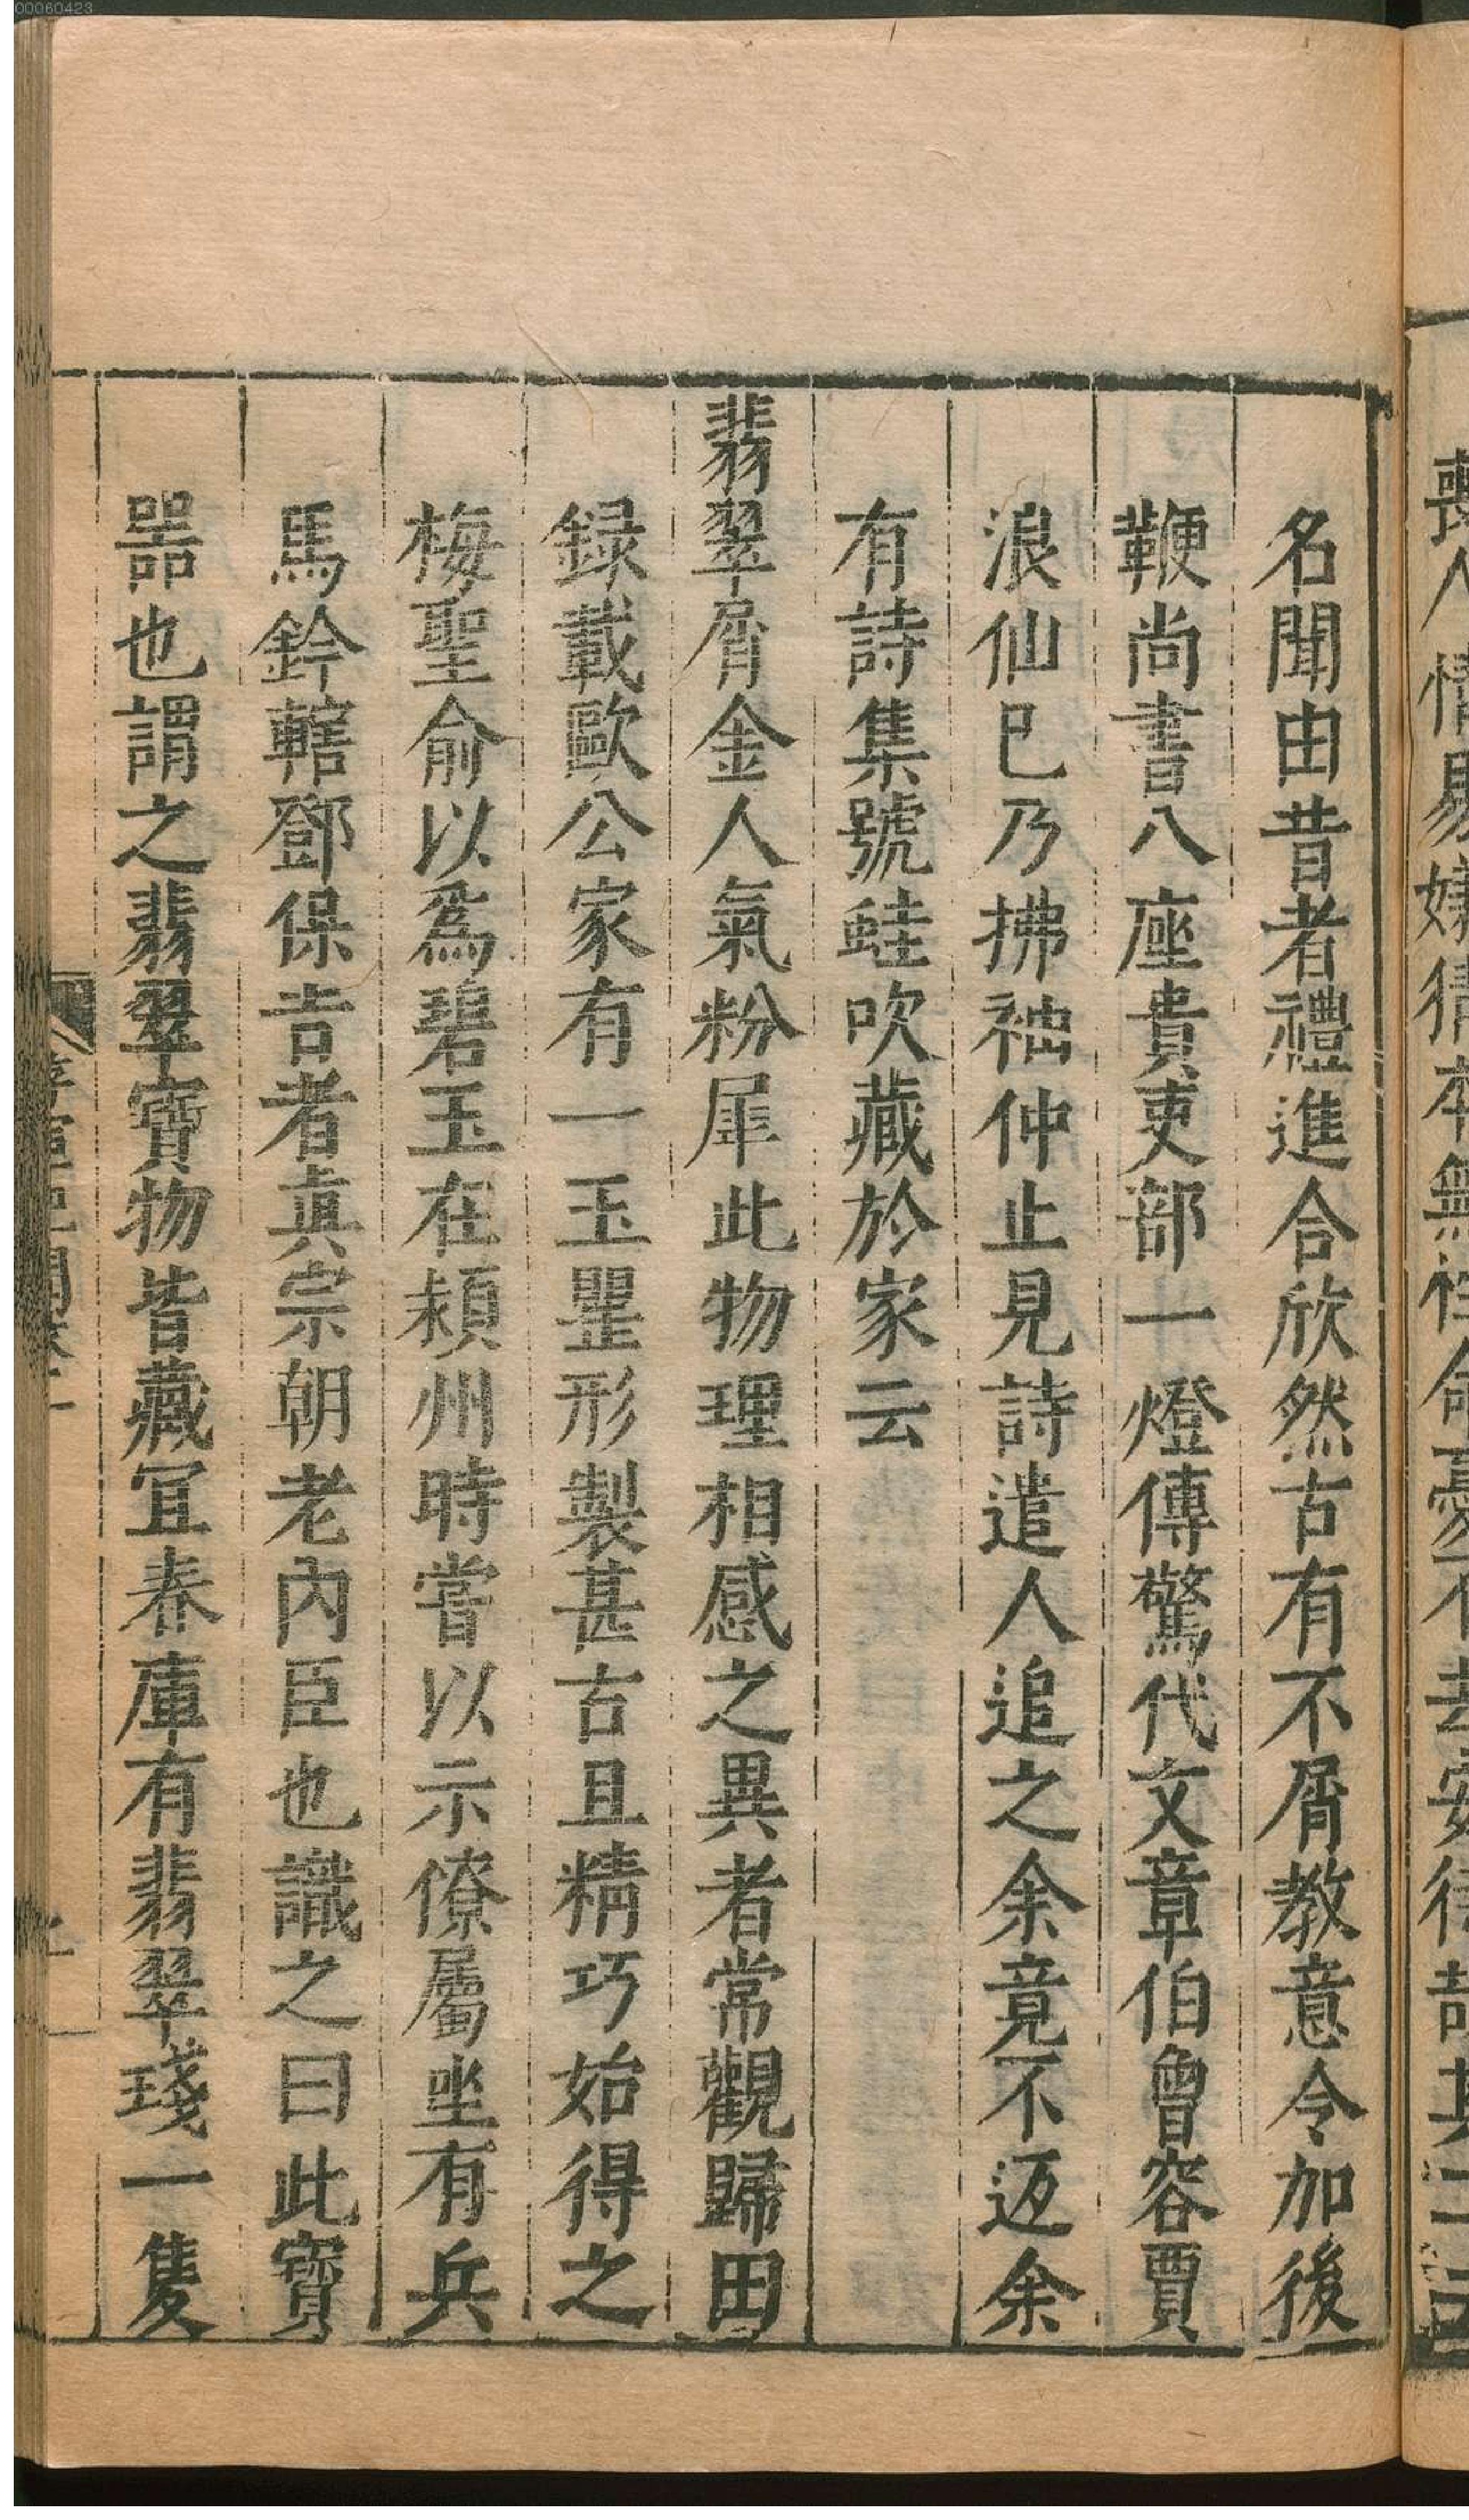 00060423
名聞由昔者禮進合欣然古有不屑教意令加後
鞭尚書八座貴吏部一燈傳驚代文章伯曾容賈
浪仙已乃拂袖仲止見詩遣人追之余竟不返余
有詩集號蛙吹藏於家云
翡翠屑金人氣粉犀此物理相感之異者常觀歸田
録載歐公家有一玉罌形製甚古且精巧始得之
梅聖俞以爲碧玉在潁州時嘗以示僚屬坐有兵
馬鈐轄鄧保吉者眞宗朝老內臣也識之曰此寶
噐也謂之翡翠寶物皆藏冝春庫有翡翠琖一隻